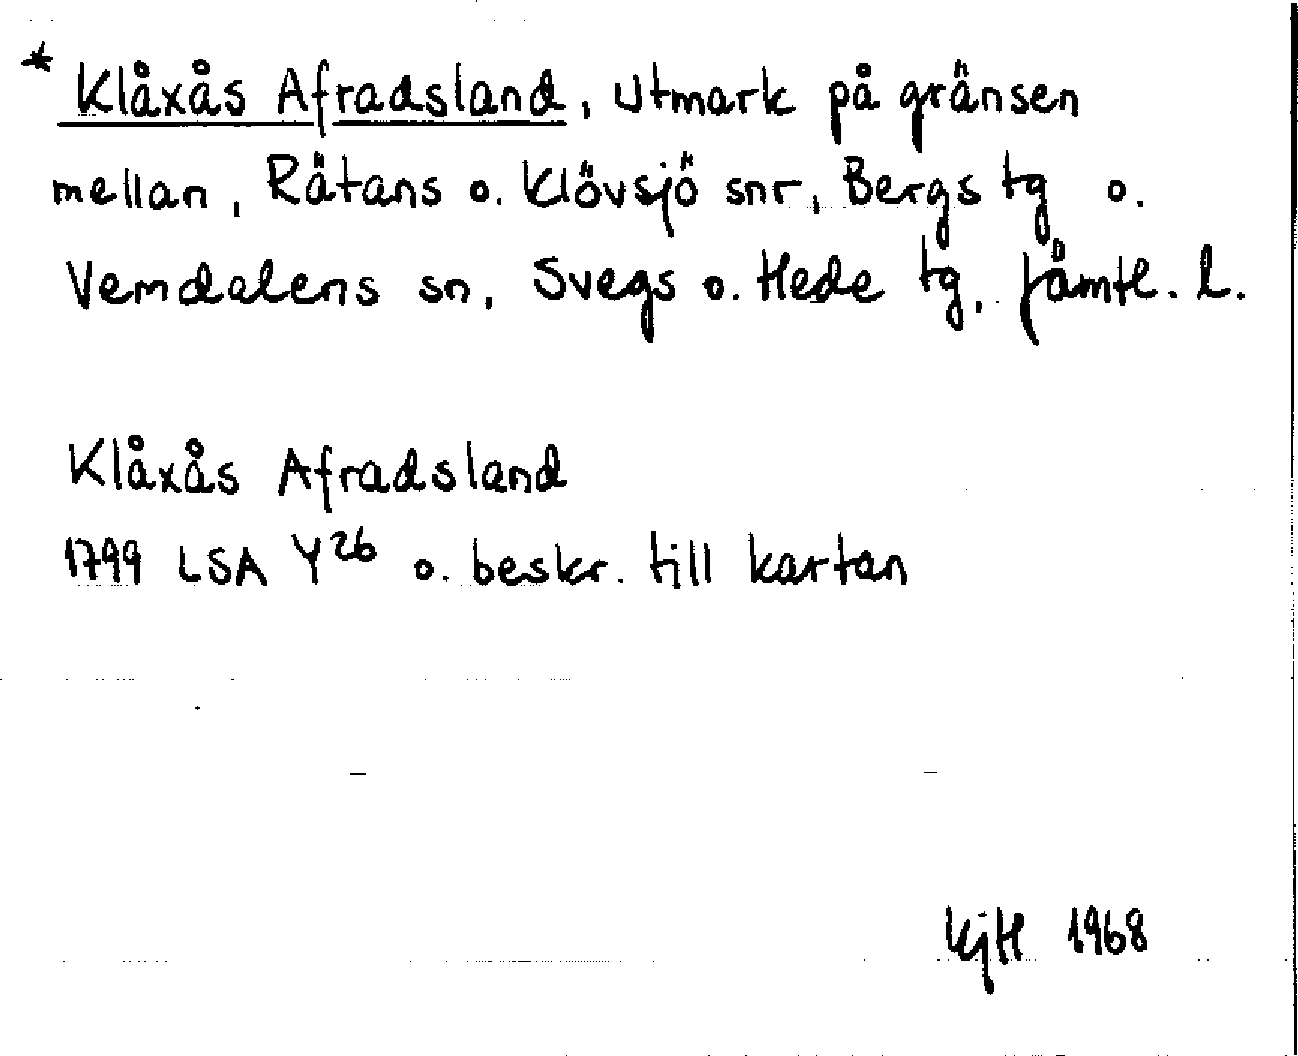 * Klåxås Afradsland, utmark på gränsen
mellan, Rätans o. Klövsjö snr, Bergs tg o.
Vemdalens sn, Svegs o. Hede tg, Jämtl. l.
Klåxås Afradsland
1799 LSA Y26 o. beskr. till kartan
KjH 1968